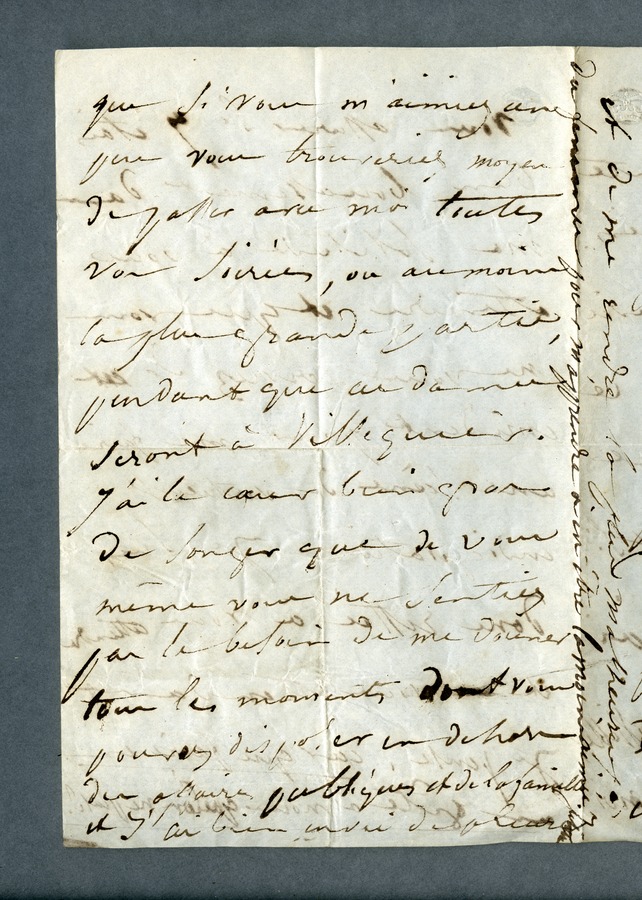 que si vous m'aimiez
que vous trouveriez moyen
de passer avec moi toutes
vos soirées, ou au moins
la plus grande partie,
pendant que ces dames
seront à Villequier.
J'ai le cœur bien gros
de songer que de vous
même vous ne sentiez
pas le besoin de me donner
tous les moments dont vous
pouvez disposer en dehors
des affaires publiques et de la famille
et j'ai bien envie de pleurer
pour m'apprendre à être la moins aimée
et de me rendre la plus malheureuse